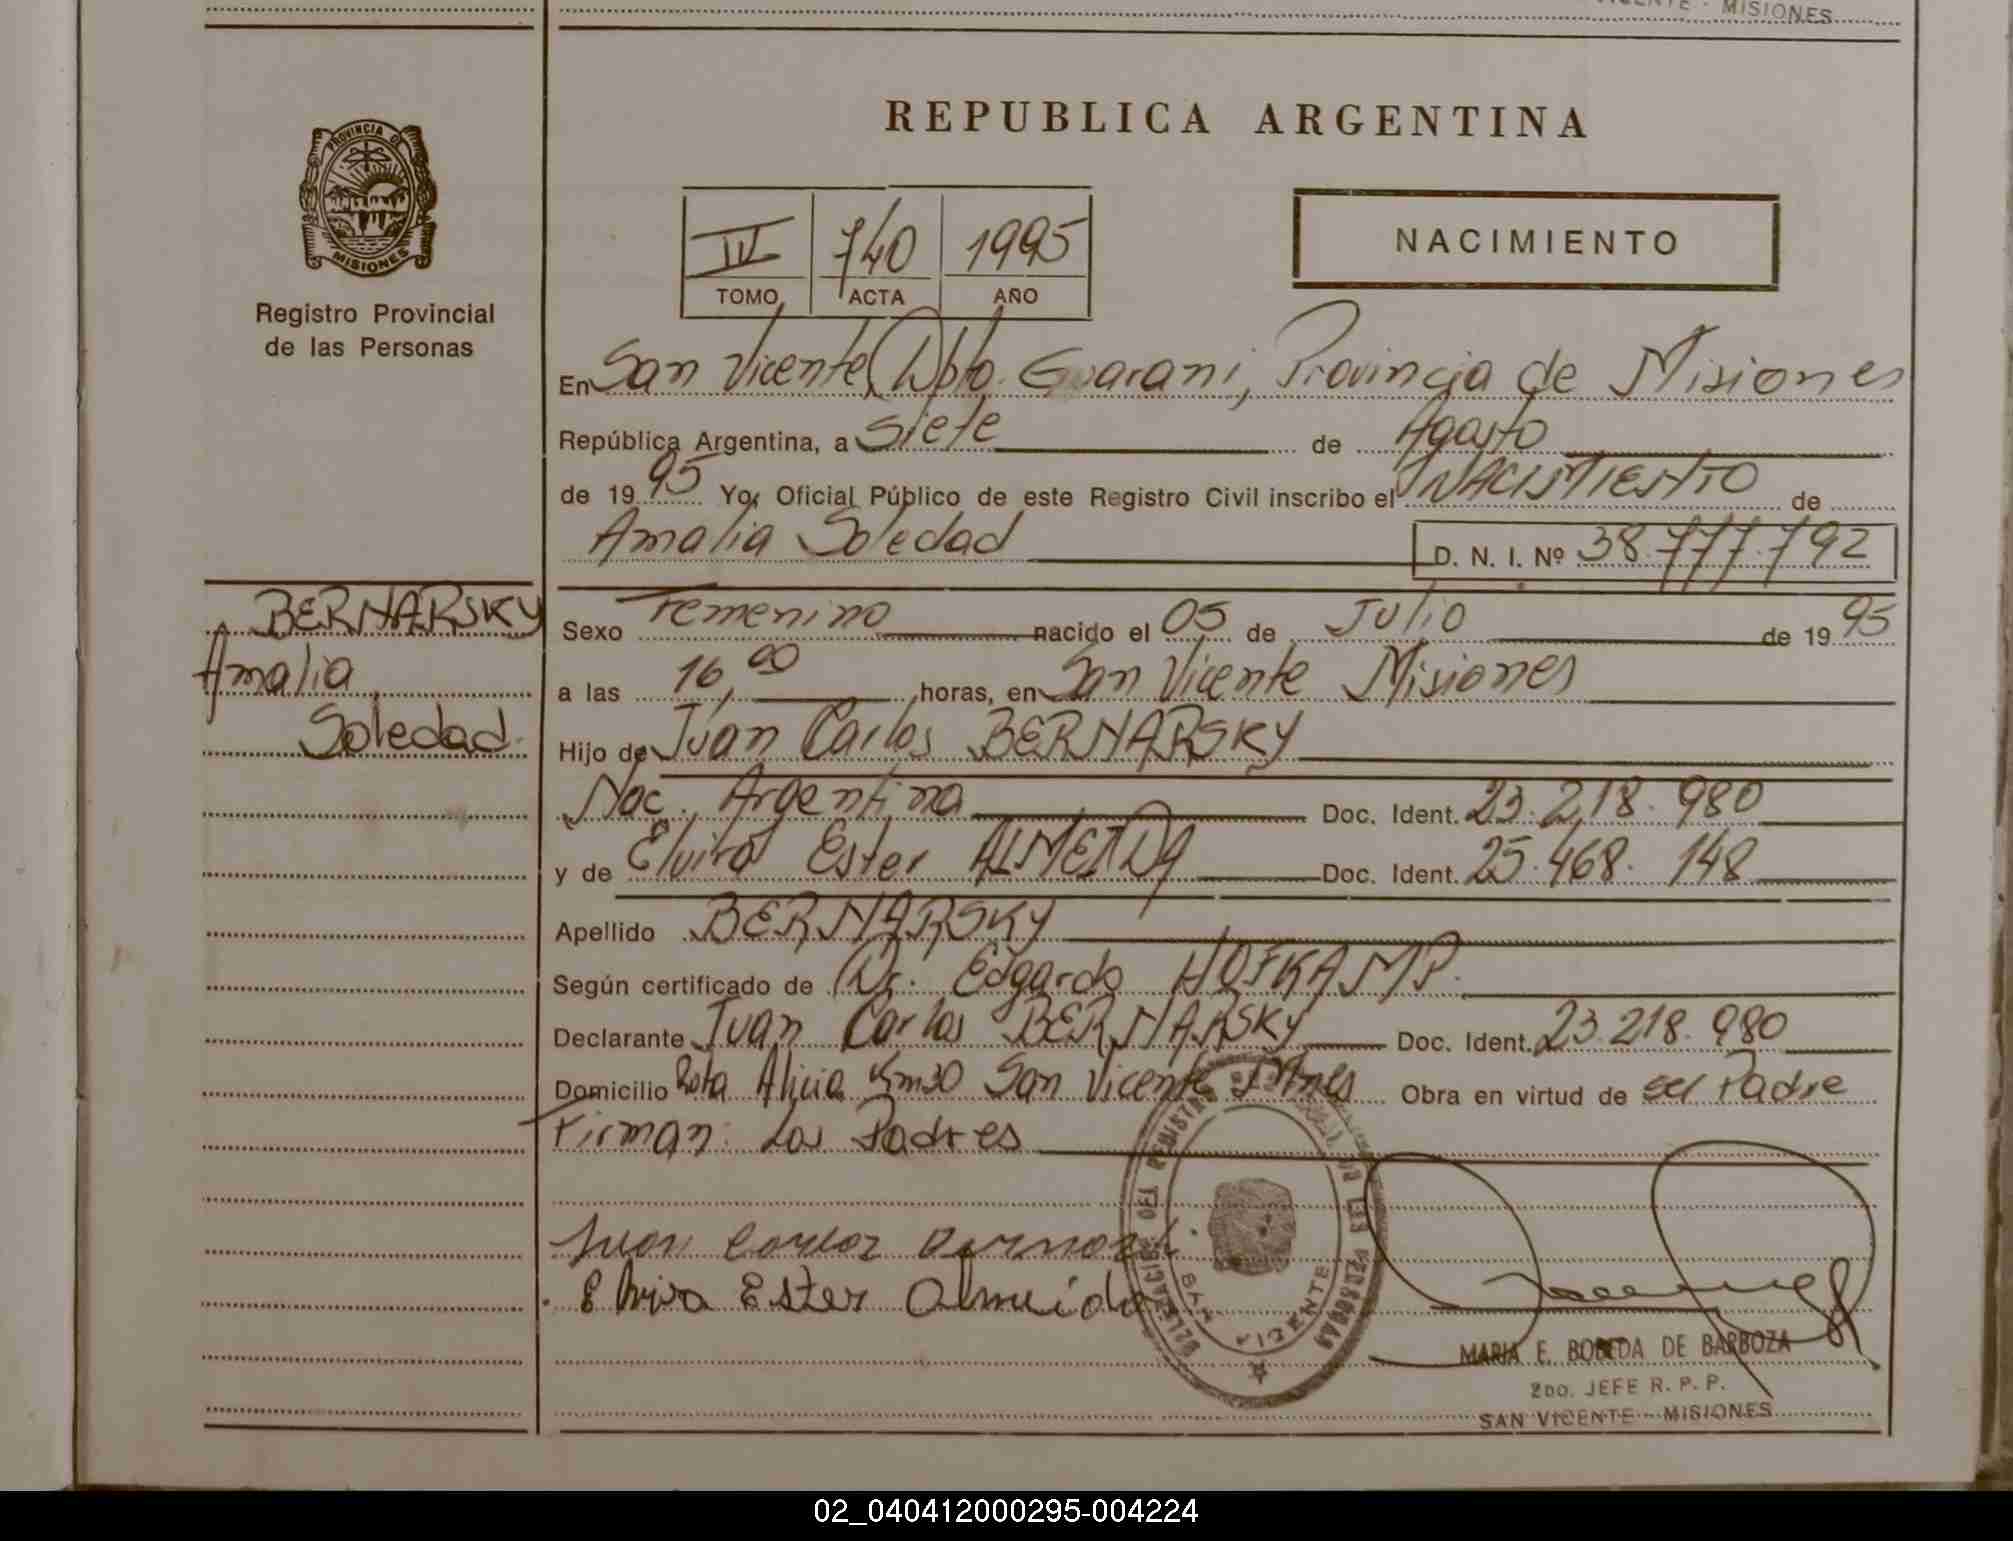 VICENTE - MISIONES
REPUBLICA ARGENTINA
PROVINCIA D
MISIONES
Registro Provincial
de las Personas
IV 740 1995
TOMO ACTA AÑO
NACIMIENTO
En San Vicente, Dpto. Guarani, Provincia de Misiones
República Argentina, a Siete de Agosto
de 1995 Yo, Oficial Público de este Registro Civil inscribo el NACIMIENTO de
Amalia Soledad D. N. I. Nº 38.777.792
BERNARSKY
Amalia
Soledad.
Sexo Femenino nacido el 05 de Julio de 1995
a las 16,00 horas, en San Vicente Misiones
Hijo de Juan Carlos BERNARSKY
Nac. Argentina Doc. Ident. 23.218.980
y de Elvira Ester ALMEIDA Doc. Ident. 25.468.148
Apellido BERNARSKY
Según certificado de Dr. Edgardo HOFKAMP.
Declarante Juan Carlos BERNARSKY Doc. Ident. 23.218.980
Domicilio Ruta Alicia Km30 San Vicente Mnes Obra en virtud de ser Padre
Firman: Los Padres
Juan Carlos
Elvira Ester Almeida
DELEGACION DEL REGISTRO DE LAS PERSONAS
SAN VICENTE
MARIA E. BOBEDA DE BARBOZA
2DO. JEFE R. P. P.
SAN VICENTE - MISIONES
02_040412000295-004224